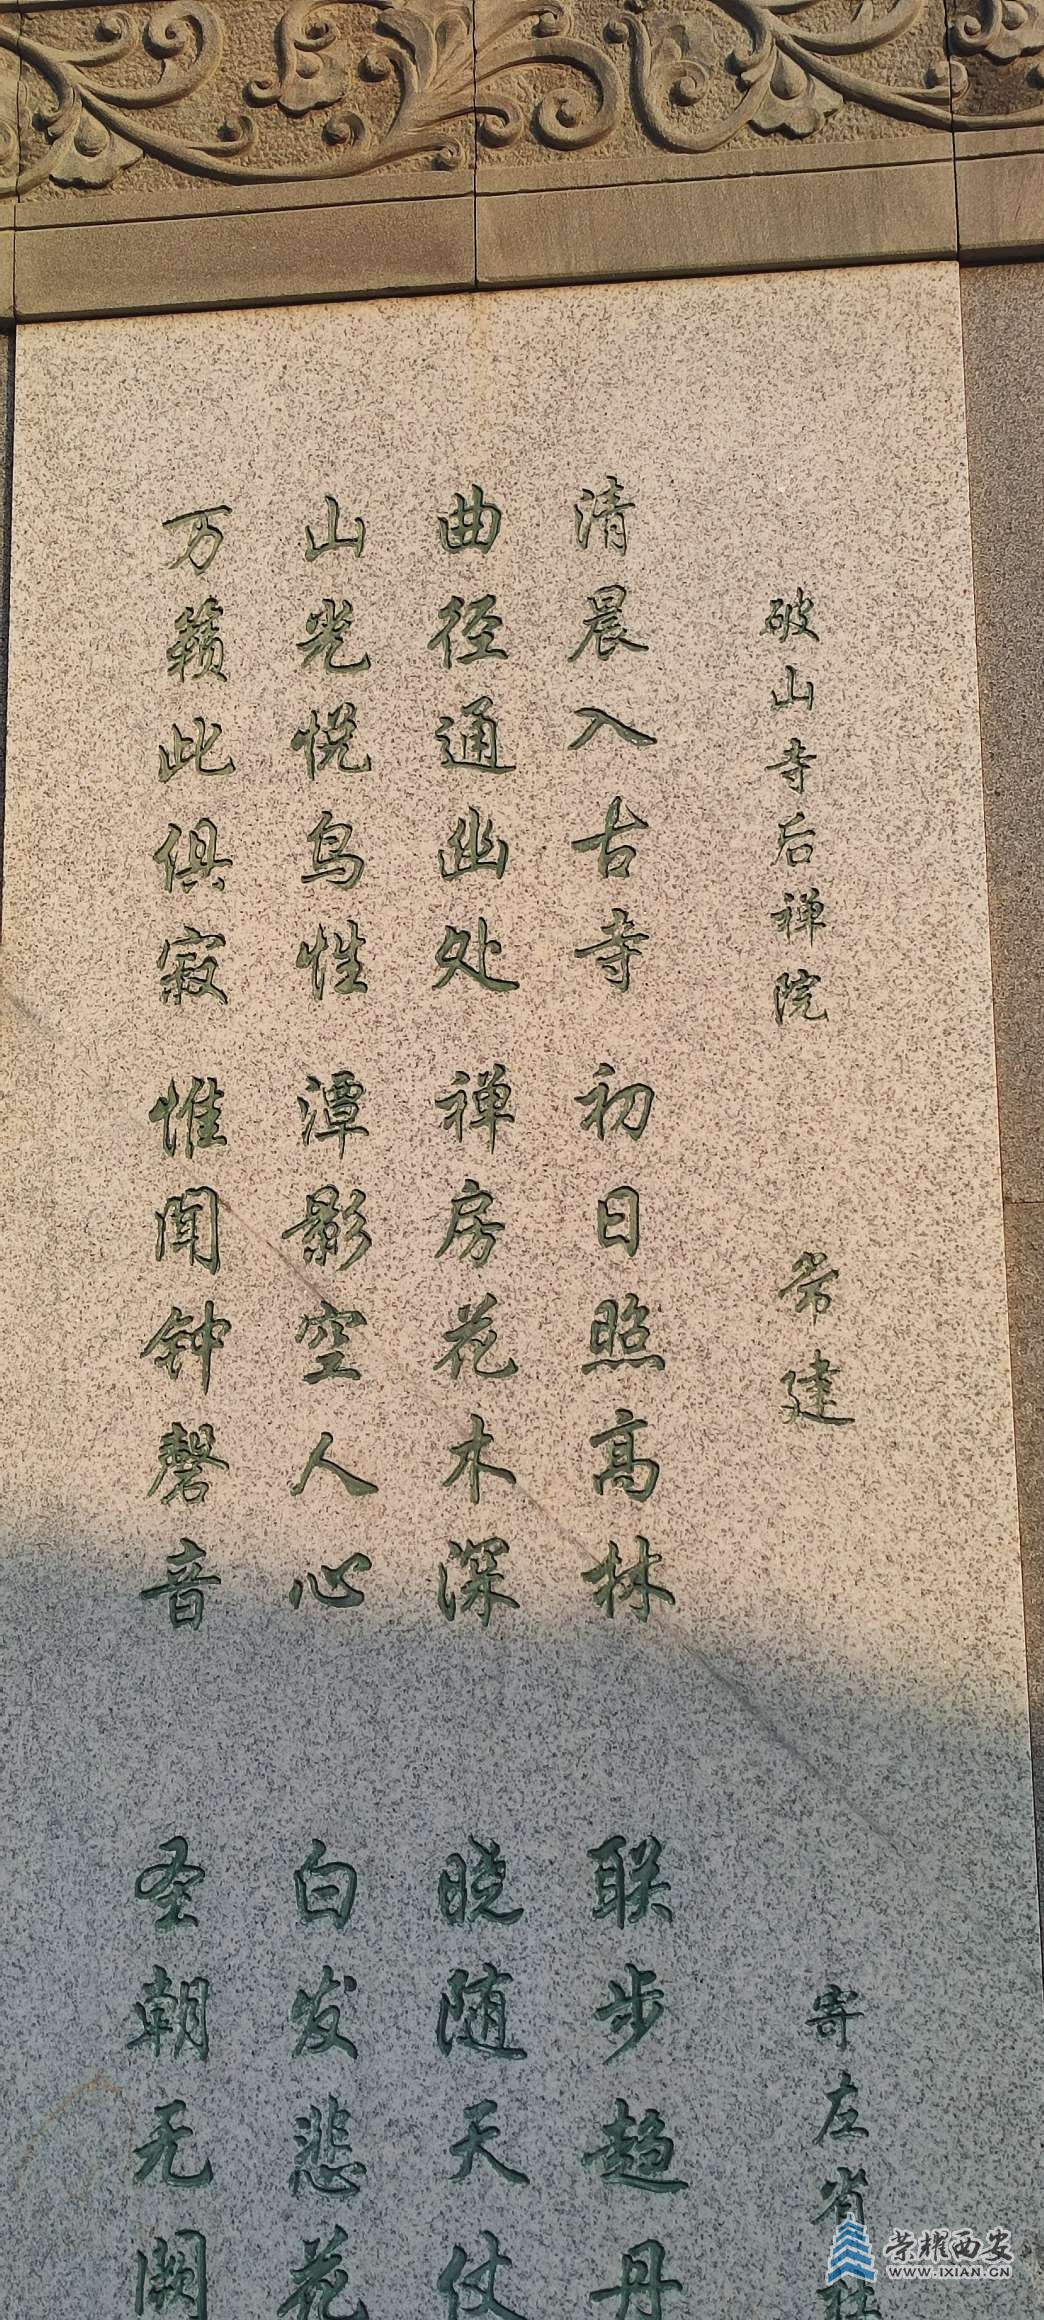 破山寺后禅院 常建
清晨入古寺 初日照高林
曲径通幽处 禅房花木深
山光悦鸟性 潭影空人心
万籁此俱寂 惟闻钟磬音
寄左省
联步趋丹
晓随天仗
白发悲花
圣朝无阙
荣耀西安
WWW.IXIAN.CN